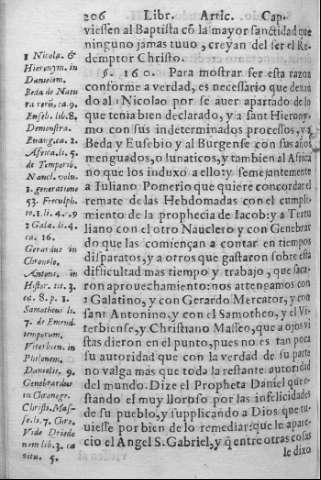 206 Libr. Artic. Cap.
viessen al Baptista cõ la mayor sanctidad que
ninguno jamas tuuo, creyan del ser el Re-
demptor Christo.
§. 160. Para mostrar ser esta razon
conforme a verdad, es necessario que dexan
do al Nicolao por se auer apartado de lo
que tenia bien declarado, y a sant Hierony-
mo con sus indeterminados processos, y a
Beda y Eusebio y al Burgense con sus años
menguados, o lunaticos, y tambien al Africa
no que los induxo a ello: y semejantemente
a Iuliano Pomerio que quiere concordar el
remate de las Hebdomadas con el cumpli-
miento de la prophecia de Iacob: y a Tertu
liano con el otro Nauclero y con Genebrar
do que las comiençan a contar en tiempos
disparatos, y a otros que gastaron sobre esta
difficultad mas tiempo y trabajo, que saca-
ron aprouechamiento: nos atengamos con
a Galatino, y con Gerardo Mercator, y con
sant Antonino, y con el Samotheo, y el Vi-
terbiense, y Christiano Masseo, que a ojos vi
stas dieron en el punto, pues no es tan poca
su autoridad que con la verdad de su parte
no valga mas que toda la restante autoridad
del mundo. Dize el Propheta Daniel que e-
stando el muy lloroso por las infelicidades
de su pueblo, y supplicando a Dios que tu-
uiesse por bien de lo remediar: que le apare-
cio el Angel S. Gabriel, y q̃ entre otras cosas
le dixo
1 Nicola. &
Hieronym. in
Danielem.
Beda de Natu
ra rerũ, ca. 9.
Euseb. lib. 8.
Demonstra.
Euang. ca. 2.
Africa. li. 5.
de Temporib.
Naucl. volu.
1. generatione
53. Freculph.
to. 1. li. 4. c. 9
2 Gala. li. 4.
ca. 16.
Gerardus in
Chronolo.
Antoni. in
Histor. ta. 3.
ca. 8. p. 1.
Samotheus li.
7. de Emend.
temporum.
Viterbien. in
Philonem.
Danielis, 9.
Genebrardus
in Chronogr.
Christi. Mas-
se. li. 7. Chro.
Vide Driedo
nem lib. 3. ca
pitu. 5.